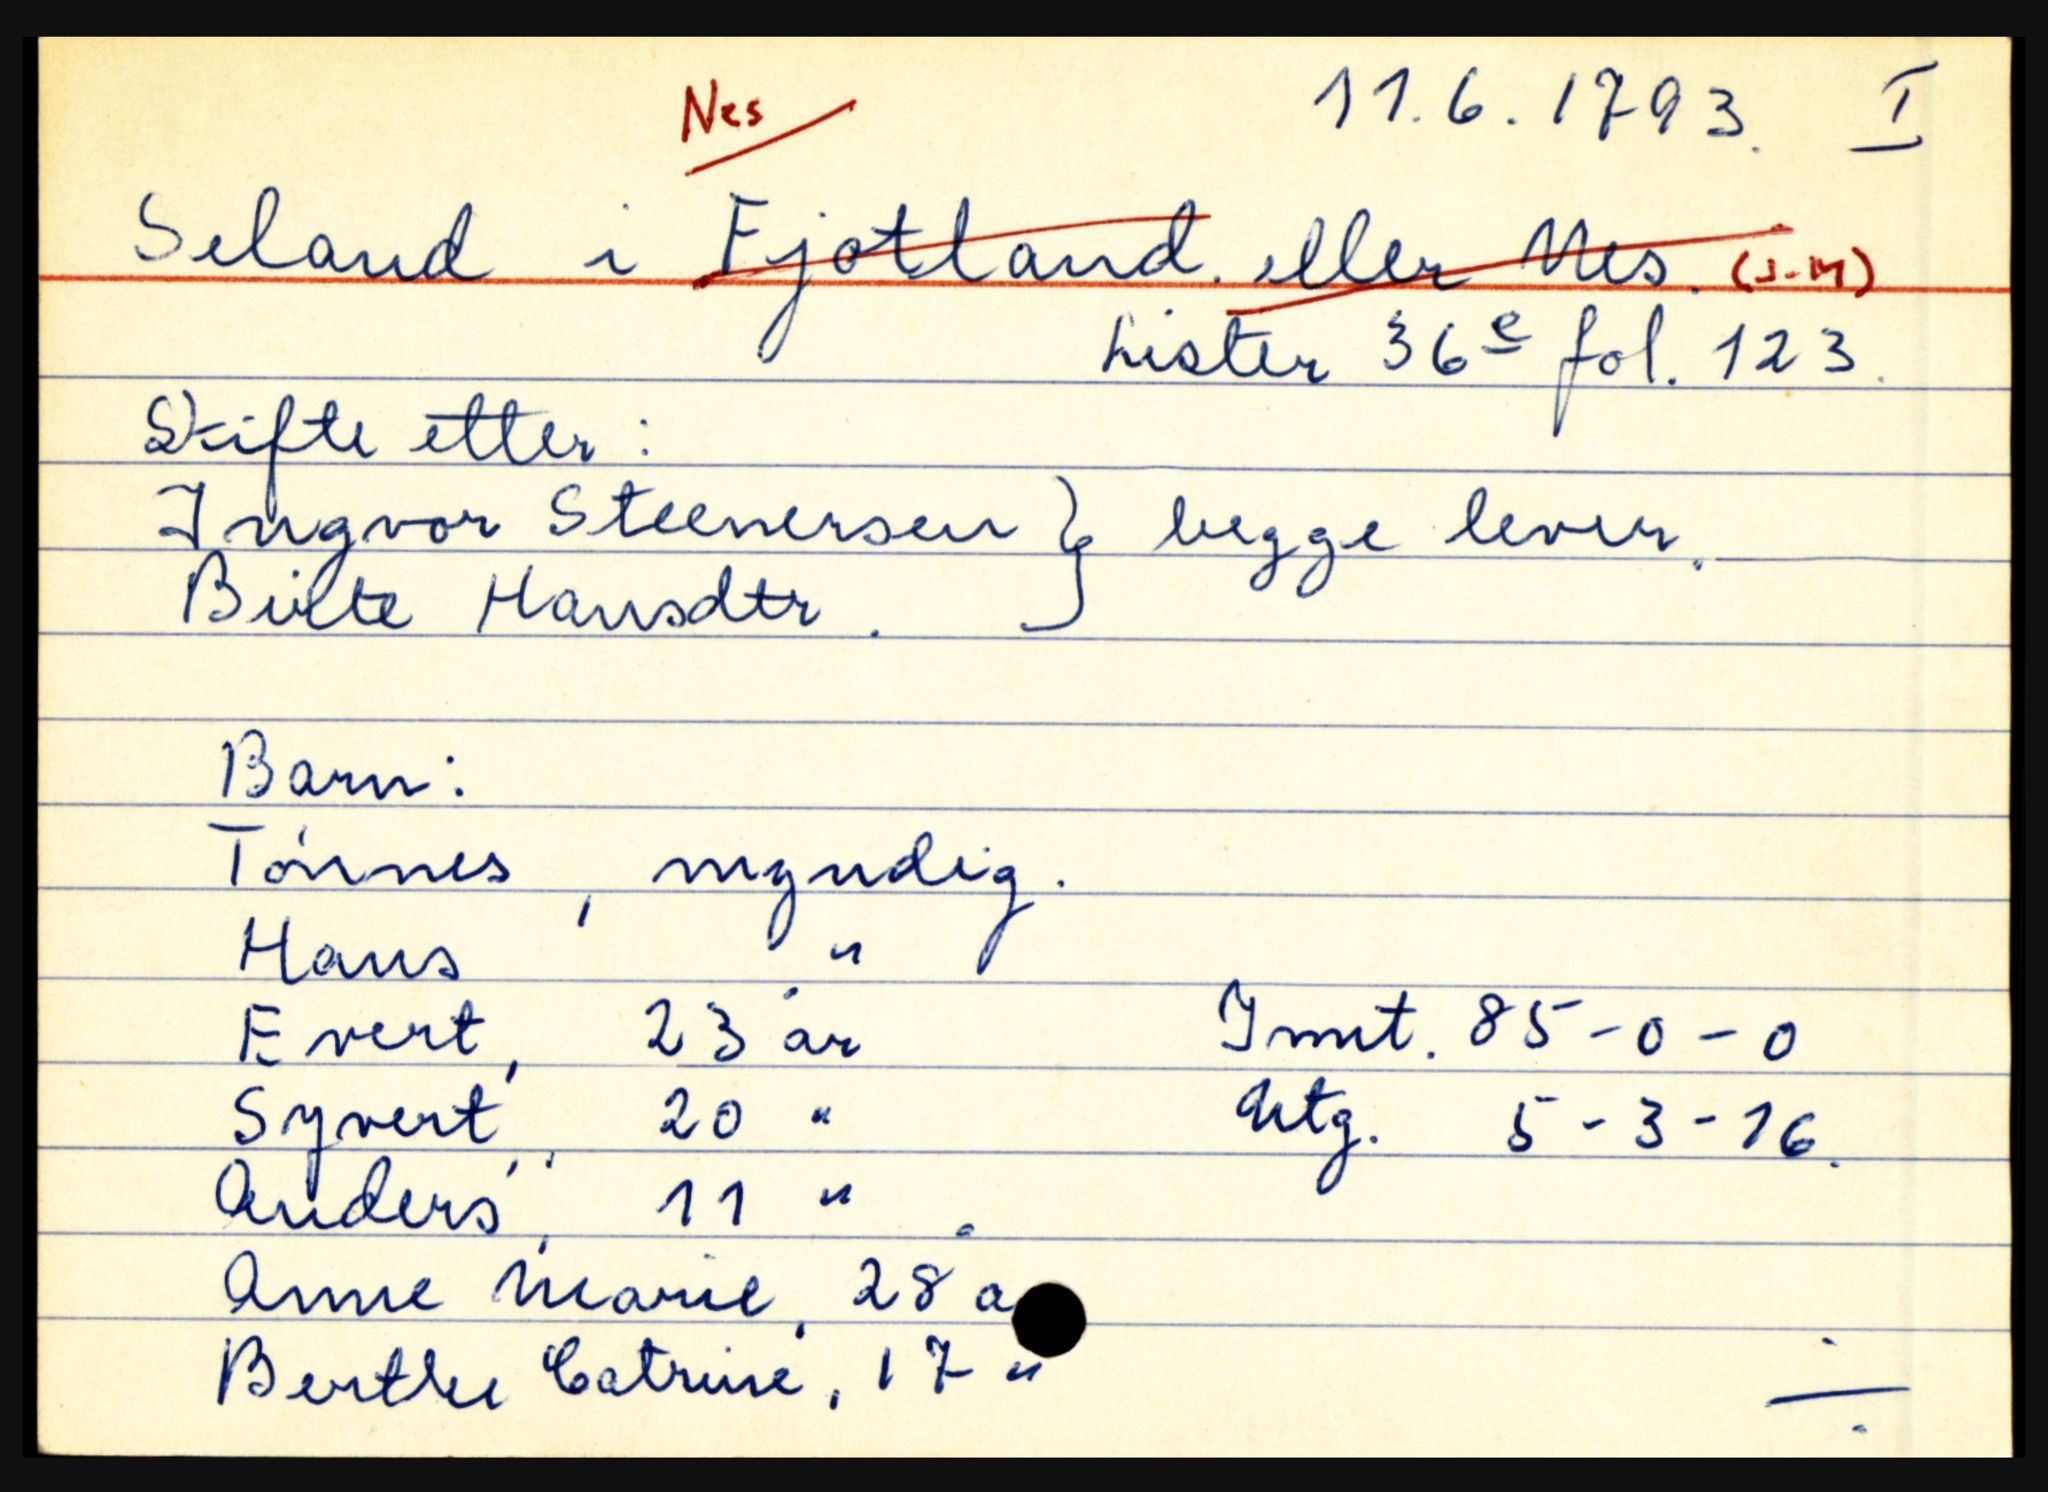 Nes
11.6.1793. I
Seland i Fjotland. eller Nes. (J-M)
Lister 36e fol. 123.
Skifte etter:
Ingvor Steenersen } begge lever.
Birte Hansdtr.
Barn:
Tónnes, myndig.
Hans "
Evert, 23 år Inmt. 85-0-0
Syvert, 20 " Utg. 5-3-16.
Anders, 11 "
Anne Marie, 28 å
Berthe Catrine, 17 "
÷